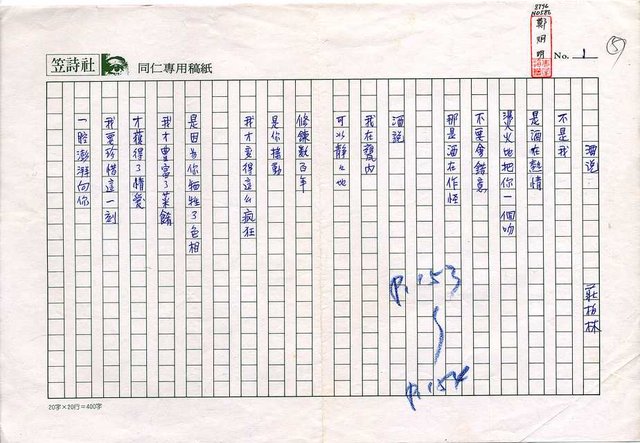 8796
N0586
鄭炯明
No. 1
5
笠詩社
同仁專用稿紙
酒說:
莊柏林
不是我
是酒在熱情
燙火地把你一個吻
不要會錯意
那是酒在作怪
酒說
我在甕內
可以靜々地
修鍊數百年
是你搖動
我才變得這么瘋狂
是因為你犧牲了色相
我才豐富了菜餚
才獲得了情愛
我要珍惜這一刻
一腔澎湃向你
P.153
P.154
20字×20行=400字